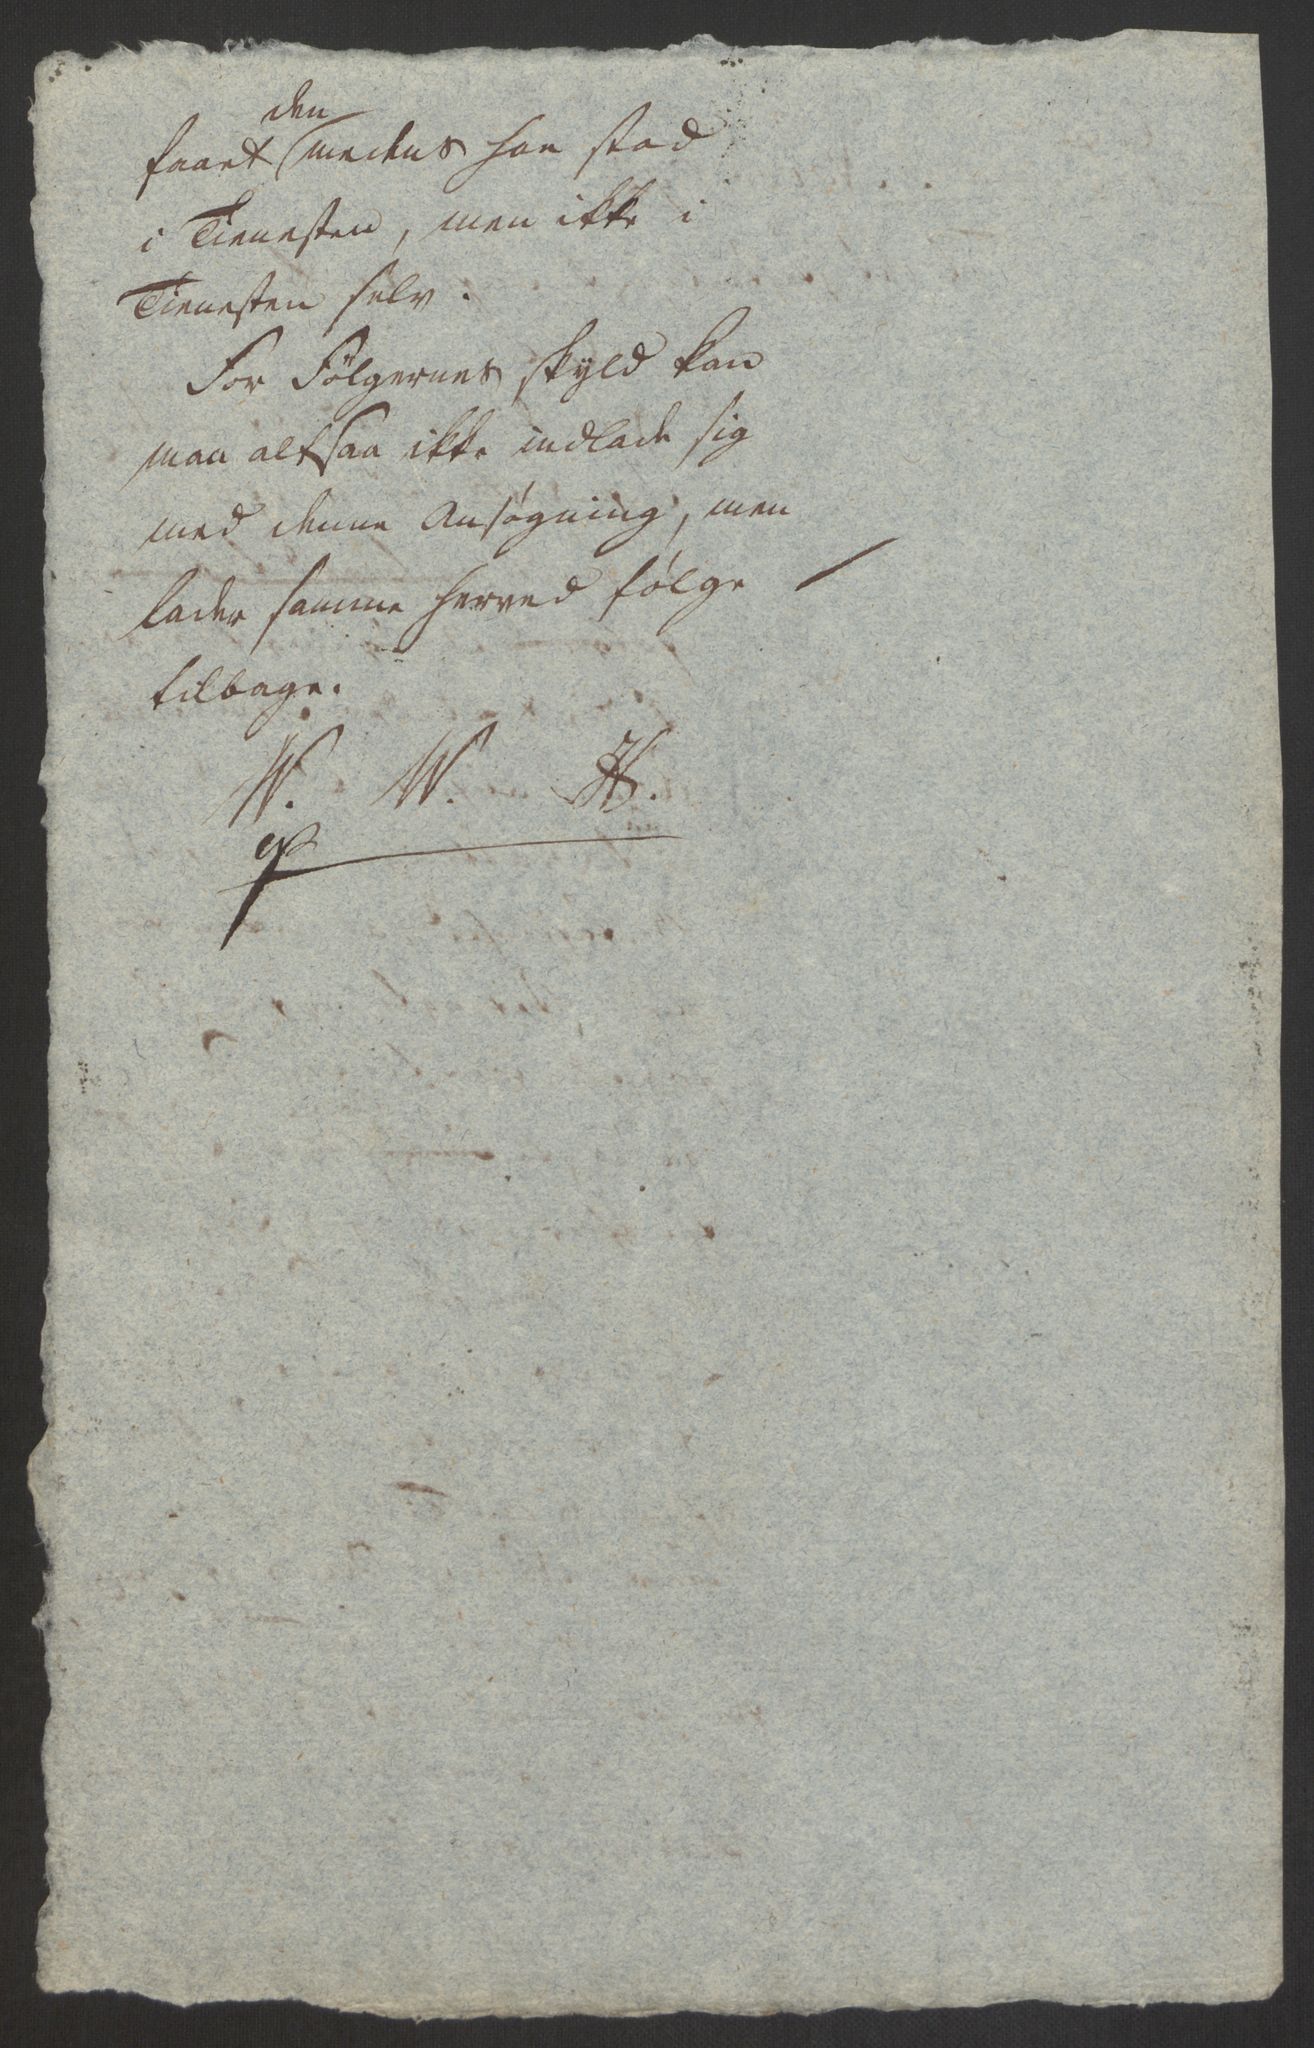 den
faaet medens han stod
i Tienesten, men ikke i
Tienesten selv.
For Følgernes skyld kan
man altsaa ikke indlade sig
med denne Ansøgning, men
lader samme herved følge /
tilbage.
W. W. H.